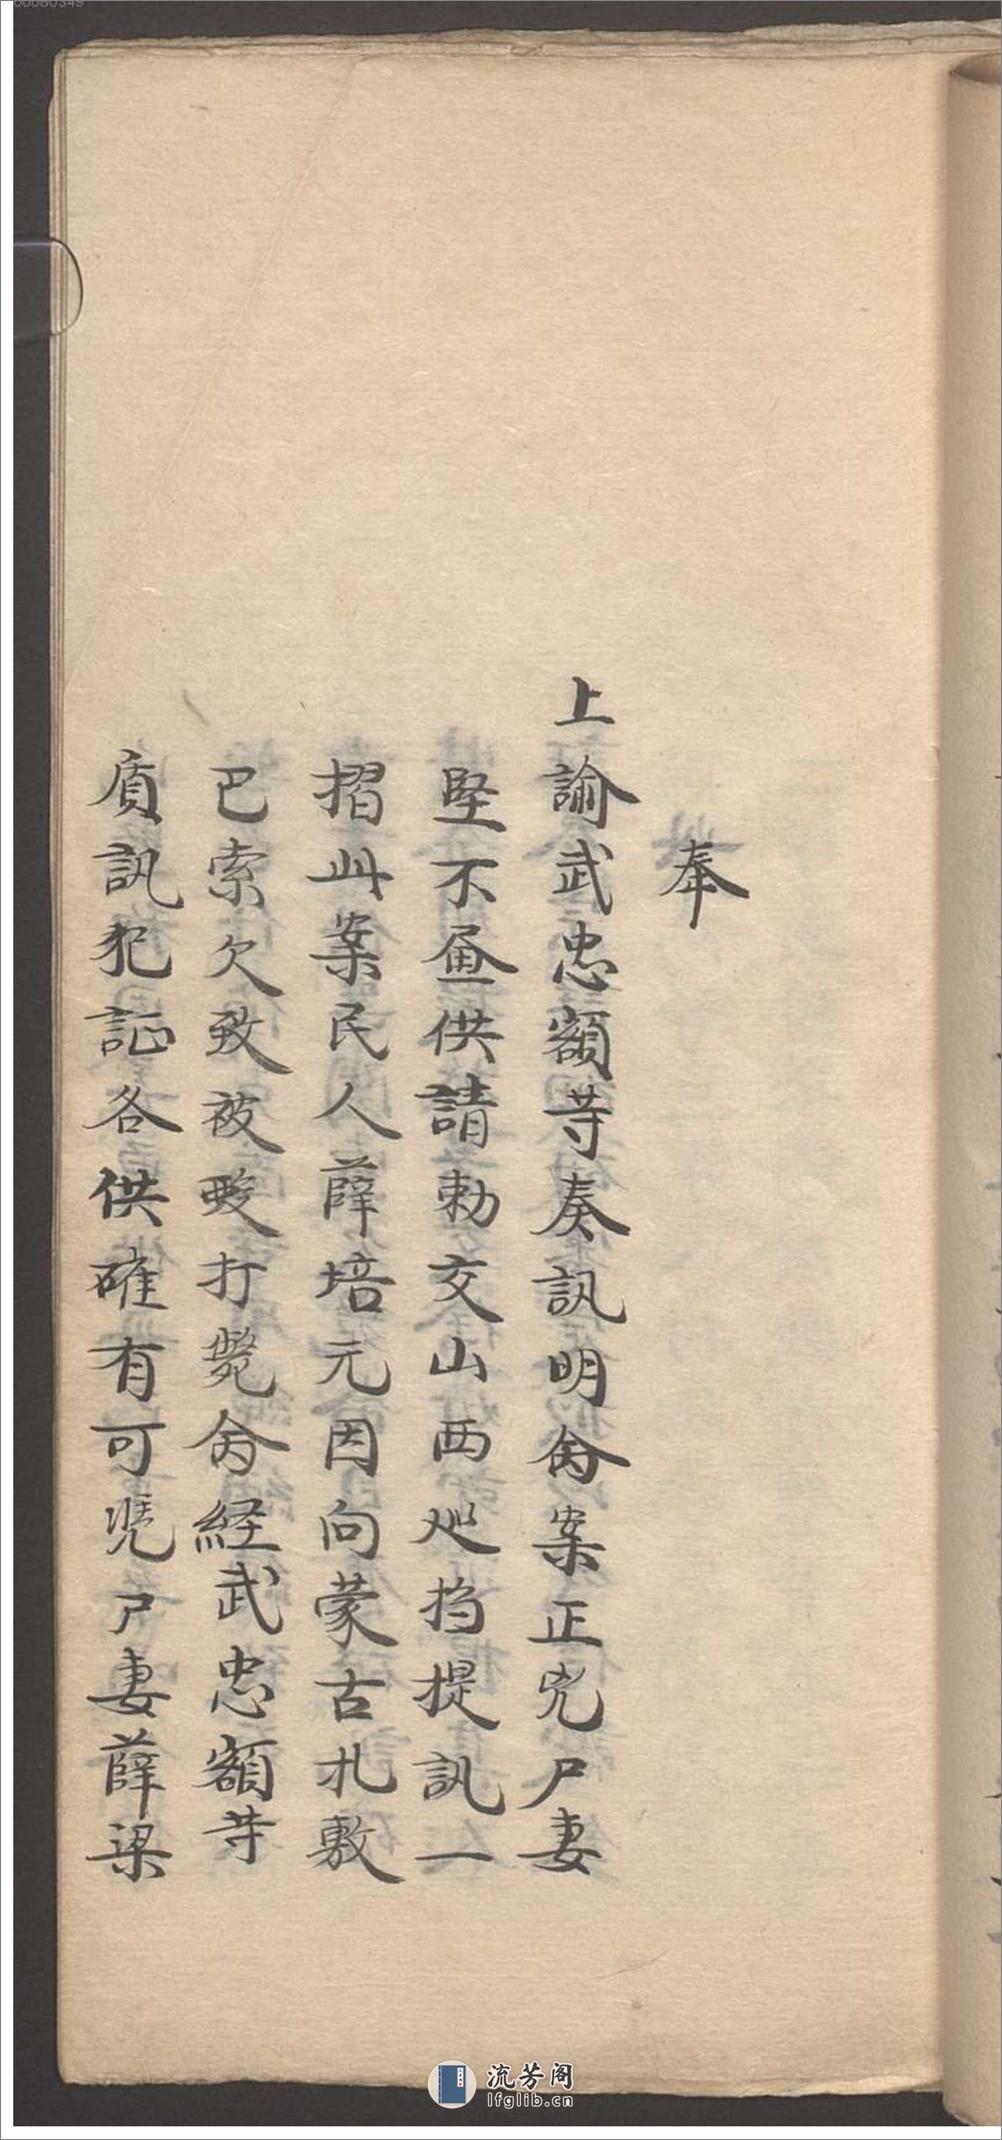 奉
上諭武忠額等奏訊明命案正兇尸妻
堅不画供請勅交山西巡撫提訊一
摺此案民人薛培元因向蒙古扎敷
巴索欠致被毆打斃命経武忠額等
質訊犯証各供確有可凴尸妻薛梁
流芳阁
lfglib.cn